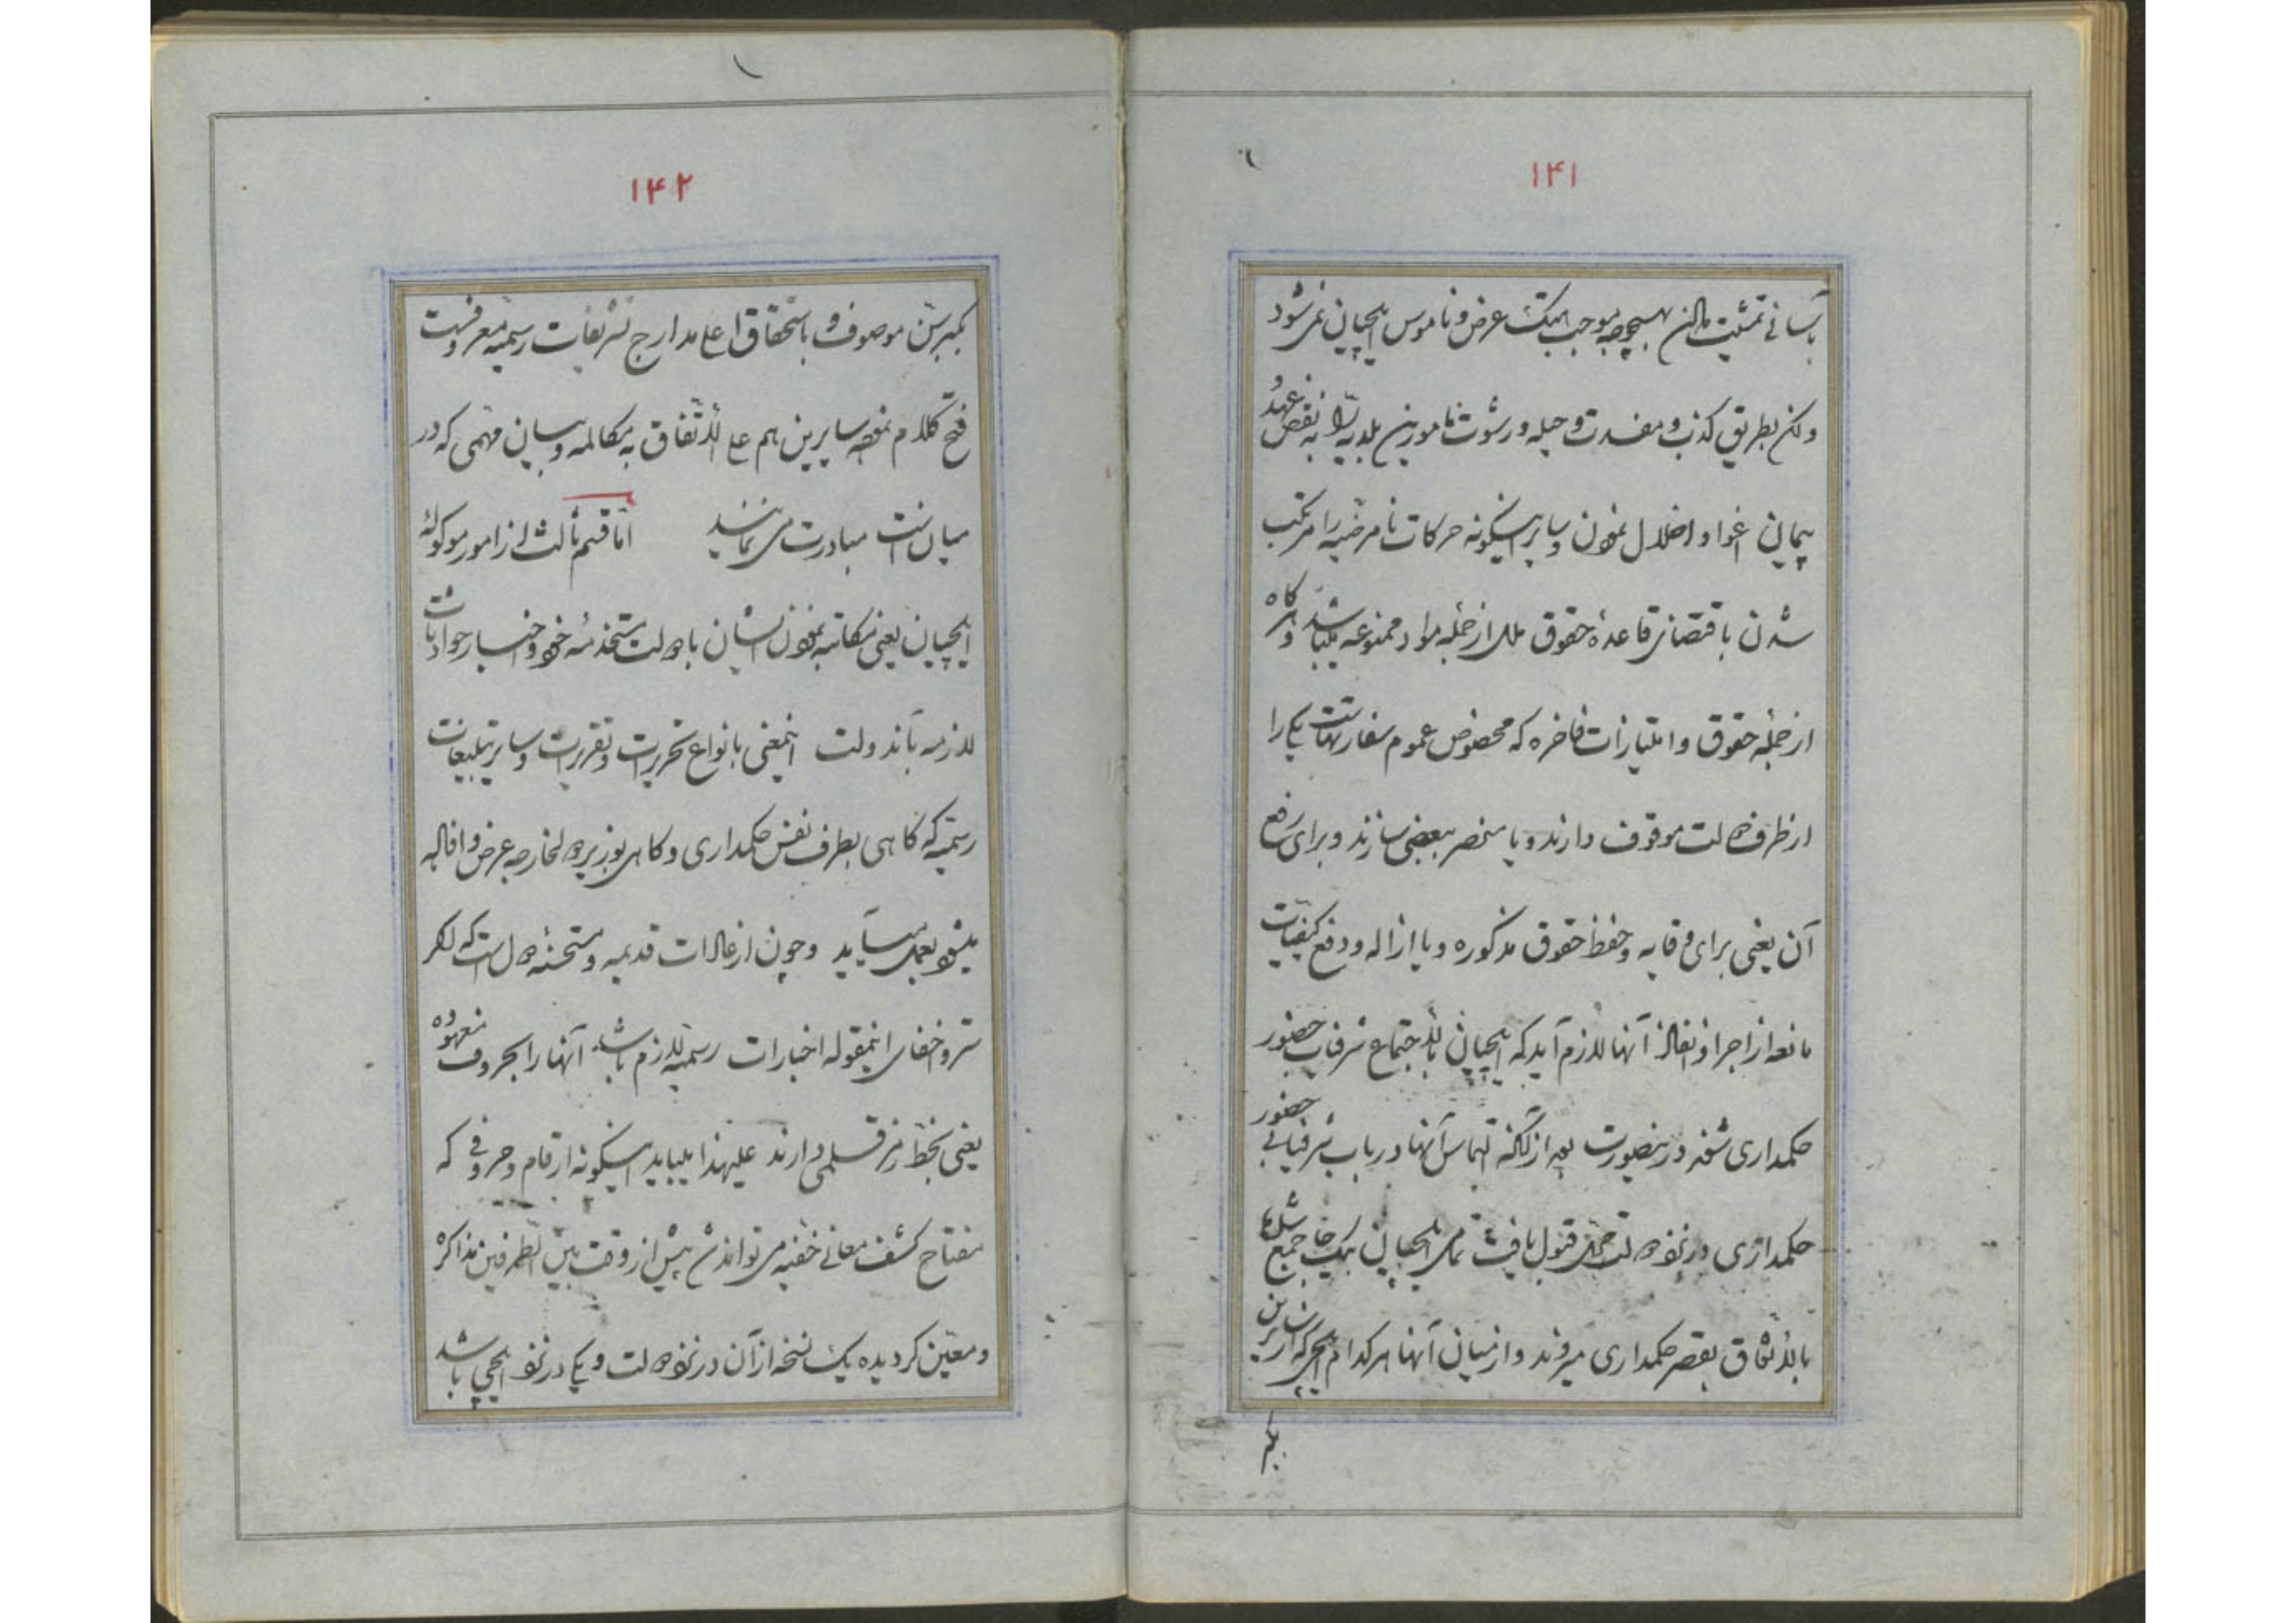 ۱۴۱
بآسانی تمشیت دادن بهیچوجه موجب هتک عرض و ناموس ایلچیان نمی‌شود
ولکن بطریق کذب و مفسدت و حیله و رشوت مامورین بلدیه را به نقض عهد و
پیمان اغوا و اضلال نمودن و سایر اینگونه حرکات نامرضیه را مرتکب
شدن باقتضای قاعدهٔ حقوق ملل از جملهٔ مواد ممنوعه میباشد و هرگاه
از جملهٔ حقوق و امتیازات فاخره که مخصوص عموم سفارتهاست یکی را
از طرف دولت موقوف دارند و یا منحصر ببعضی سازند و برای رفع
آن یعنی برای وقایه و حفظ حقوق مذکوره و یا ازاله و دفع کیفیات
مانعه از اجرا و انفاذ آنها لازم آید که ایلچیان بالاجتماع شرفیاب حضور
حکمداری شوند در اینصورت بعد از آنکه التماس آنها در باب شرفیابی حضور
حکمداری در نزد دولت قبول یافت تمامی ایلچیان بیک جا جمع شده
بالاتفاق بقصر حکمداری میروند و از میان آنها هر کدام ایلچی که از سایرین
بکبر
۱۴۲
بکبر سن موصوف و باستحقاق اعلی مدارج تشریفات رسمیه معروفست
فتح کلام نموده سایرین هم علی الاتفاق به مکالمه و بیان مهمی که در
میان است مبادرت می‌نمایند اما قسم ثالث از امور موکولهٔ
ایلچیان یعنی مکاتبه نمودن ایشان با دولت مستخدمهٔ خود و اخبار حوادثات
لازمه بآندولت اینمعنی بانواع تحریرات و تقریرات و سایر تبلیغات
رسمیه که گاهی بطرف نفس حکمداری و گاهی بوزیر دول خارجه عرض و افاده
میشود بعمل میآید و چون از عادات قدیمه و مستحسنهٔ دول است که اگر
ستر و اخفای اینمقوله اخبارات رسمیه لازم باشد آنها را بحروف معهوده
یعنی بخط رمز قلمی دارند علیهذا میباید اینگونه ارقام و حروفی که
مفتاح کشف معانی خفیه می‌تواند شد پیش از وقت بین الطرفین مذاکره
و معین گردیده یک نسخه از آن در نزد دولت و یکی در نزد ایلچی باشد